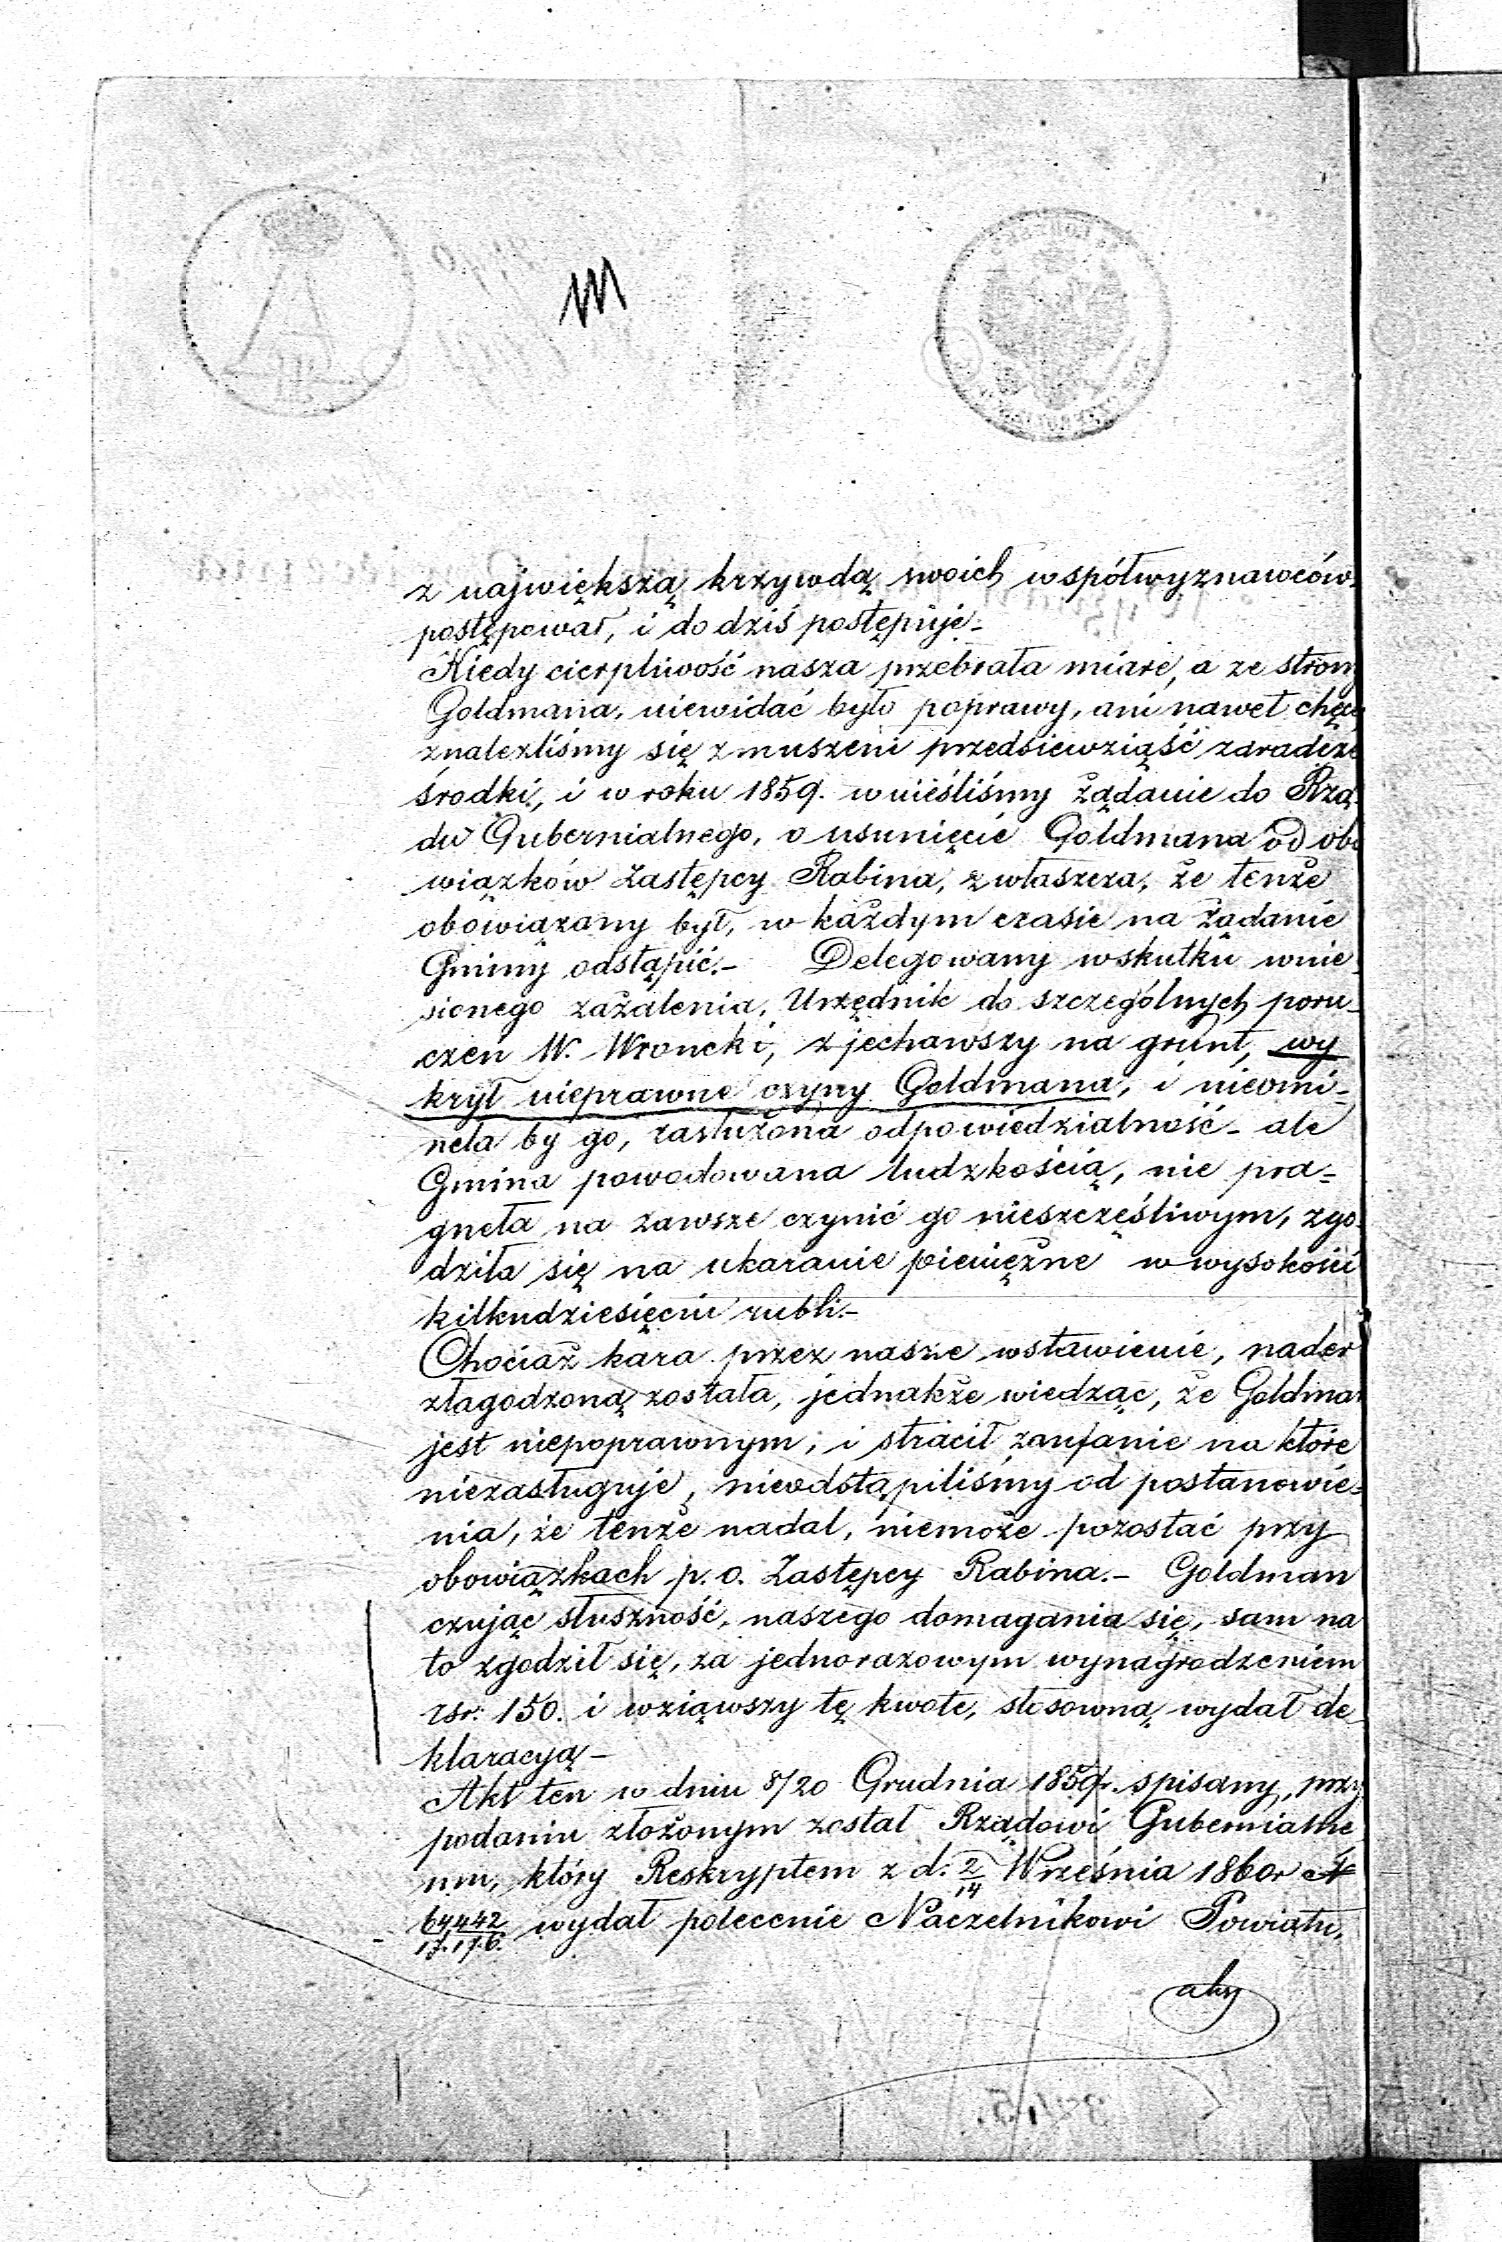 z największą krzywdą swoich współwyznawców
postępował, i do dziś postępuje_
Kiedy cierpliwość nasza przebrała miarę, a ze strony
Goldmana, niewidać było poprawy, ani nawet chęci
znaleźliśmy się zmuszeni przedsiewziąść zaradcze
środki, i w roku 1859. wnieśliśmy żądanie do Rzą_
du Gubernialnego, o usunięcie Goldmana od obo
wiązków Zastępcy Rabina, zwłaszcza, że tenże
obowiązany był, w każdym czasie na żądanie
Gminy odstąpić._ Delegowany wskutku wnie_
sionego zażalenia, Urzędnik do szczególnych poru_
czeń W. Wroncki, zjechawszy na grunt, wy
krył nieprawne czyny Goldmana, i nieomi_
nęła by go, zasłużona odpowiedzialność_ ale
Gmina powodowana ludzkością, nie pra_
gnęła na zawsze czynić go nieszczęśliwym, zgo_
dziła się na ukaranie pieniężne w wysokości
kilkudziesięciu rubli._
Chociaż kara przez nasze wstawienie, nader
złagodzoną została, jednakże wiedząc, że Goldman
jest niepoprawnym, i stracił zaufanie na które
niezasługuje, nieodstąpiliśmy od postanowie_
nia, że tenże nadal, niemoże pozostać przy
obowiązkach p. o. Zastępcy Rabina._ Goldman
czując słuszność, naszego domagania się, sam na
to zgodził się, za jednorazowym wynagrodzeniem
rsr: 150. i wziąwszy tę kwotę, stosowną wydał de_
klaracyą_
Akt ten w dniu 8/20 Grudnia 1859r. spisany, przy
podaniu złożonym został Rządowi Gubernialne
mu, który Reskryptem z d. 2/14 Września 1860r N
64442 wydał polecenie Naczelnikowi Powiatu,
aby